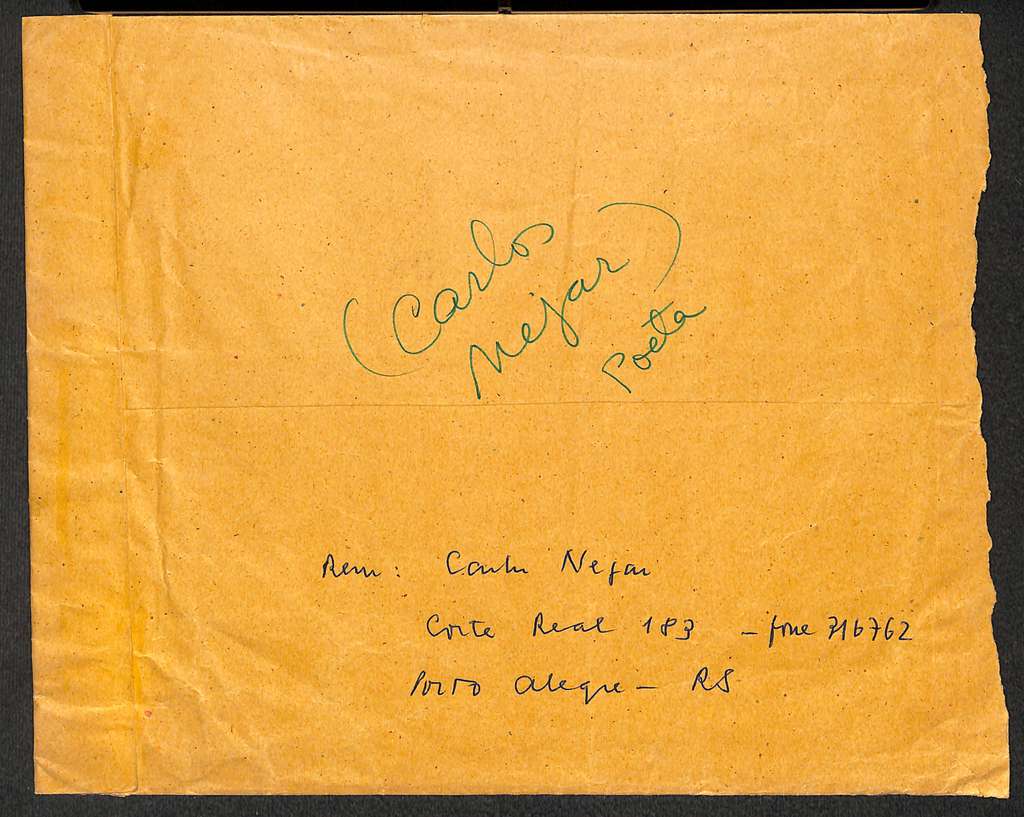 (Carlos
Nejar)
Poeta
Rem: Carlos Nejar
Corte Real 183 - fone 316762
Porto Alegre - RS